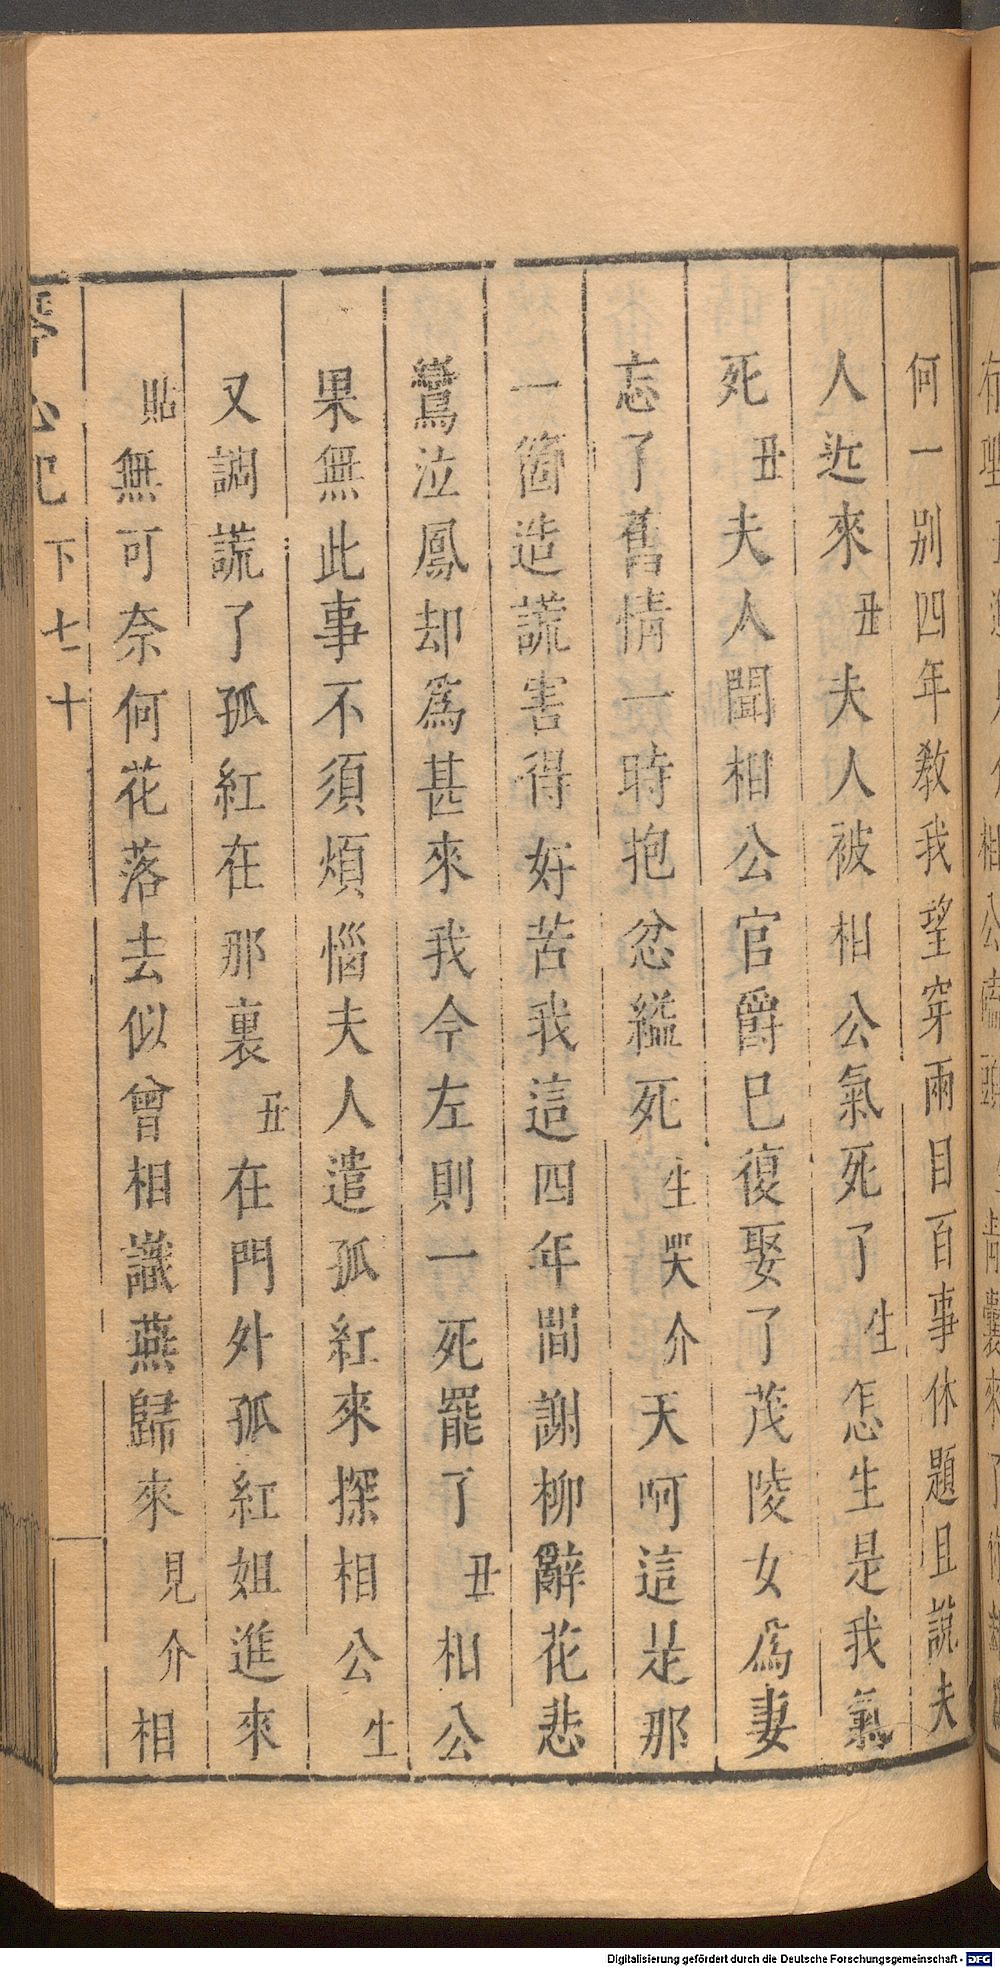 何一别四年敎我望穿兩目百事休題且說夫
人近來丑夫人被相公氣死了生怎生是我氣
死丑夫人聞相公官爵巳復娶了茂陵女爲妻
忘了舊情一時抱忿縊死生哭介天呵這是那
一箇造謊害得好苦我這四年間謝柳辭花悲
鸞泣鳳却爲甚來我今左則一死罷了丑相公
果無此事不須煩惱夫人遣孤紅來探相公生
又調謊了孤紅在那裏丑在門外孤紅姐進來
貼無可奈何花落去似曾相識燕歸來見介相
琴心記
下七十
Digitalisierung gefördert durch die Deutsche Forschungsgemeinschaft - DFG